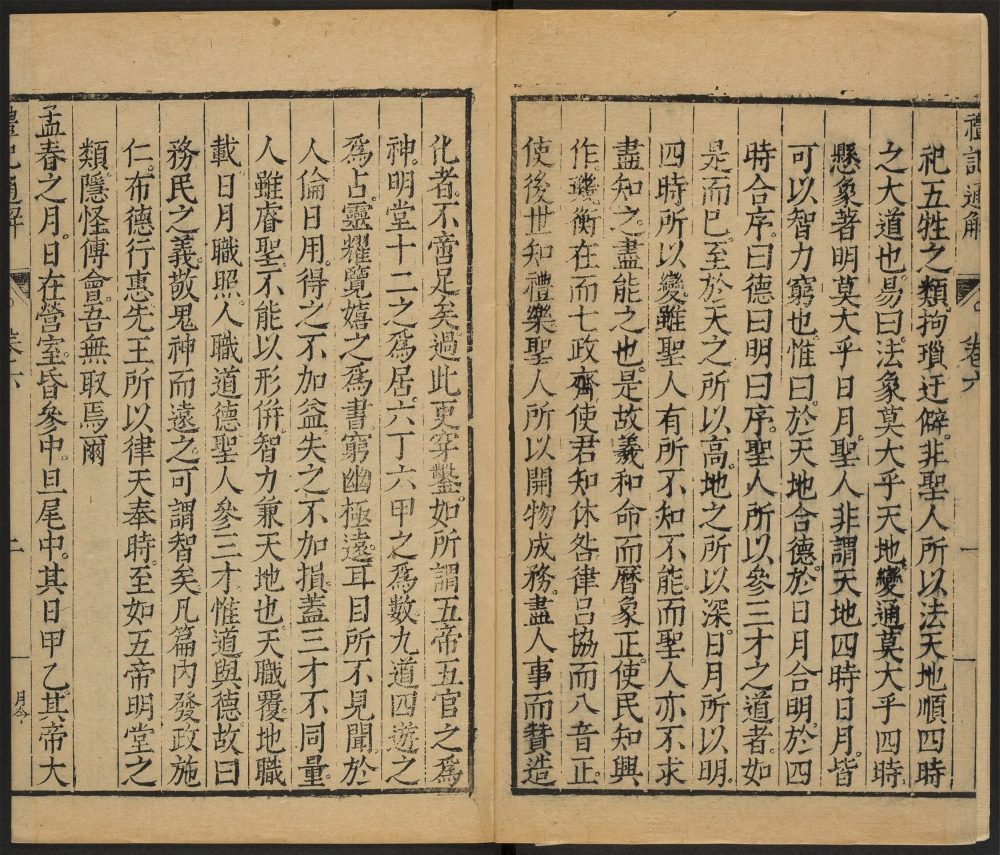 禮記通解 卷六 一
祀五牲之類。拘瑣迂僻。非聖人所以法天地順四時
之大道也。易曰。法象莫大乎天地。變通莫大乎四時
懸象著明莫大乎日月。聖人非謂天地四時日月。皆
可以智力窮也。惟曰於天地合德。於日月合明。於四
時合序。曰德曰明曰序。聖人所以參三才之道者。如
是而已。至於天之所以高。地之所以深。日月所以明。
四時所以變。雖聖人有所不知不能。而聖人亦不求
盡知之。盡能之也。是故羲和命而曆象正。使民知興
作。璣衡在而七政齊。使君知休咎。律呂協而八音正。
使後世知禮樂。聖人所以開物成務。盡人事而贊造
化者。不啻足矣。過此更穿鑿。如所謂五帝五官之爲
神。明堂十二之爲居。六丁六甲之爲數。九道四遊之
爲占。靈耀覽嬉之爲書。窮幽極遠。耳目所不見聞。於
人倫日用。得之不加益。失之不加損。蓋三才不同量。
人雖睿聖。不能以形倂智力兼天地也。天職覆。地職
載。日月職照。人職道德。聖人參三才惟道與德。故曰
務民之義。敬鬼神而遠之。可謂智矣。凡篇內發政施
仁。布德行惠。先王所以律天奉時。至如五帝明堂之
類。隱怪傅會。吾無取焉爾
孟春之月。日在營室。昏參中。旦尾中。其日甲乙。其帝大
禮記通解 卷六 二 月令